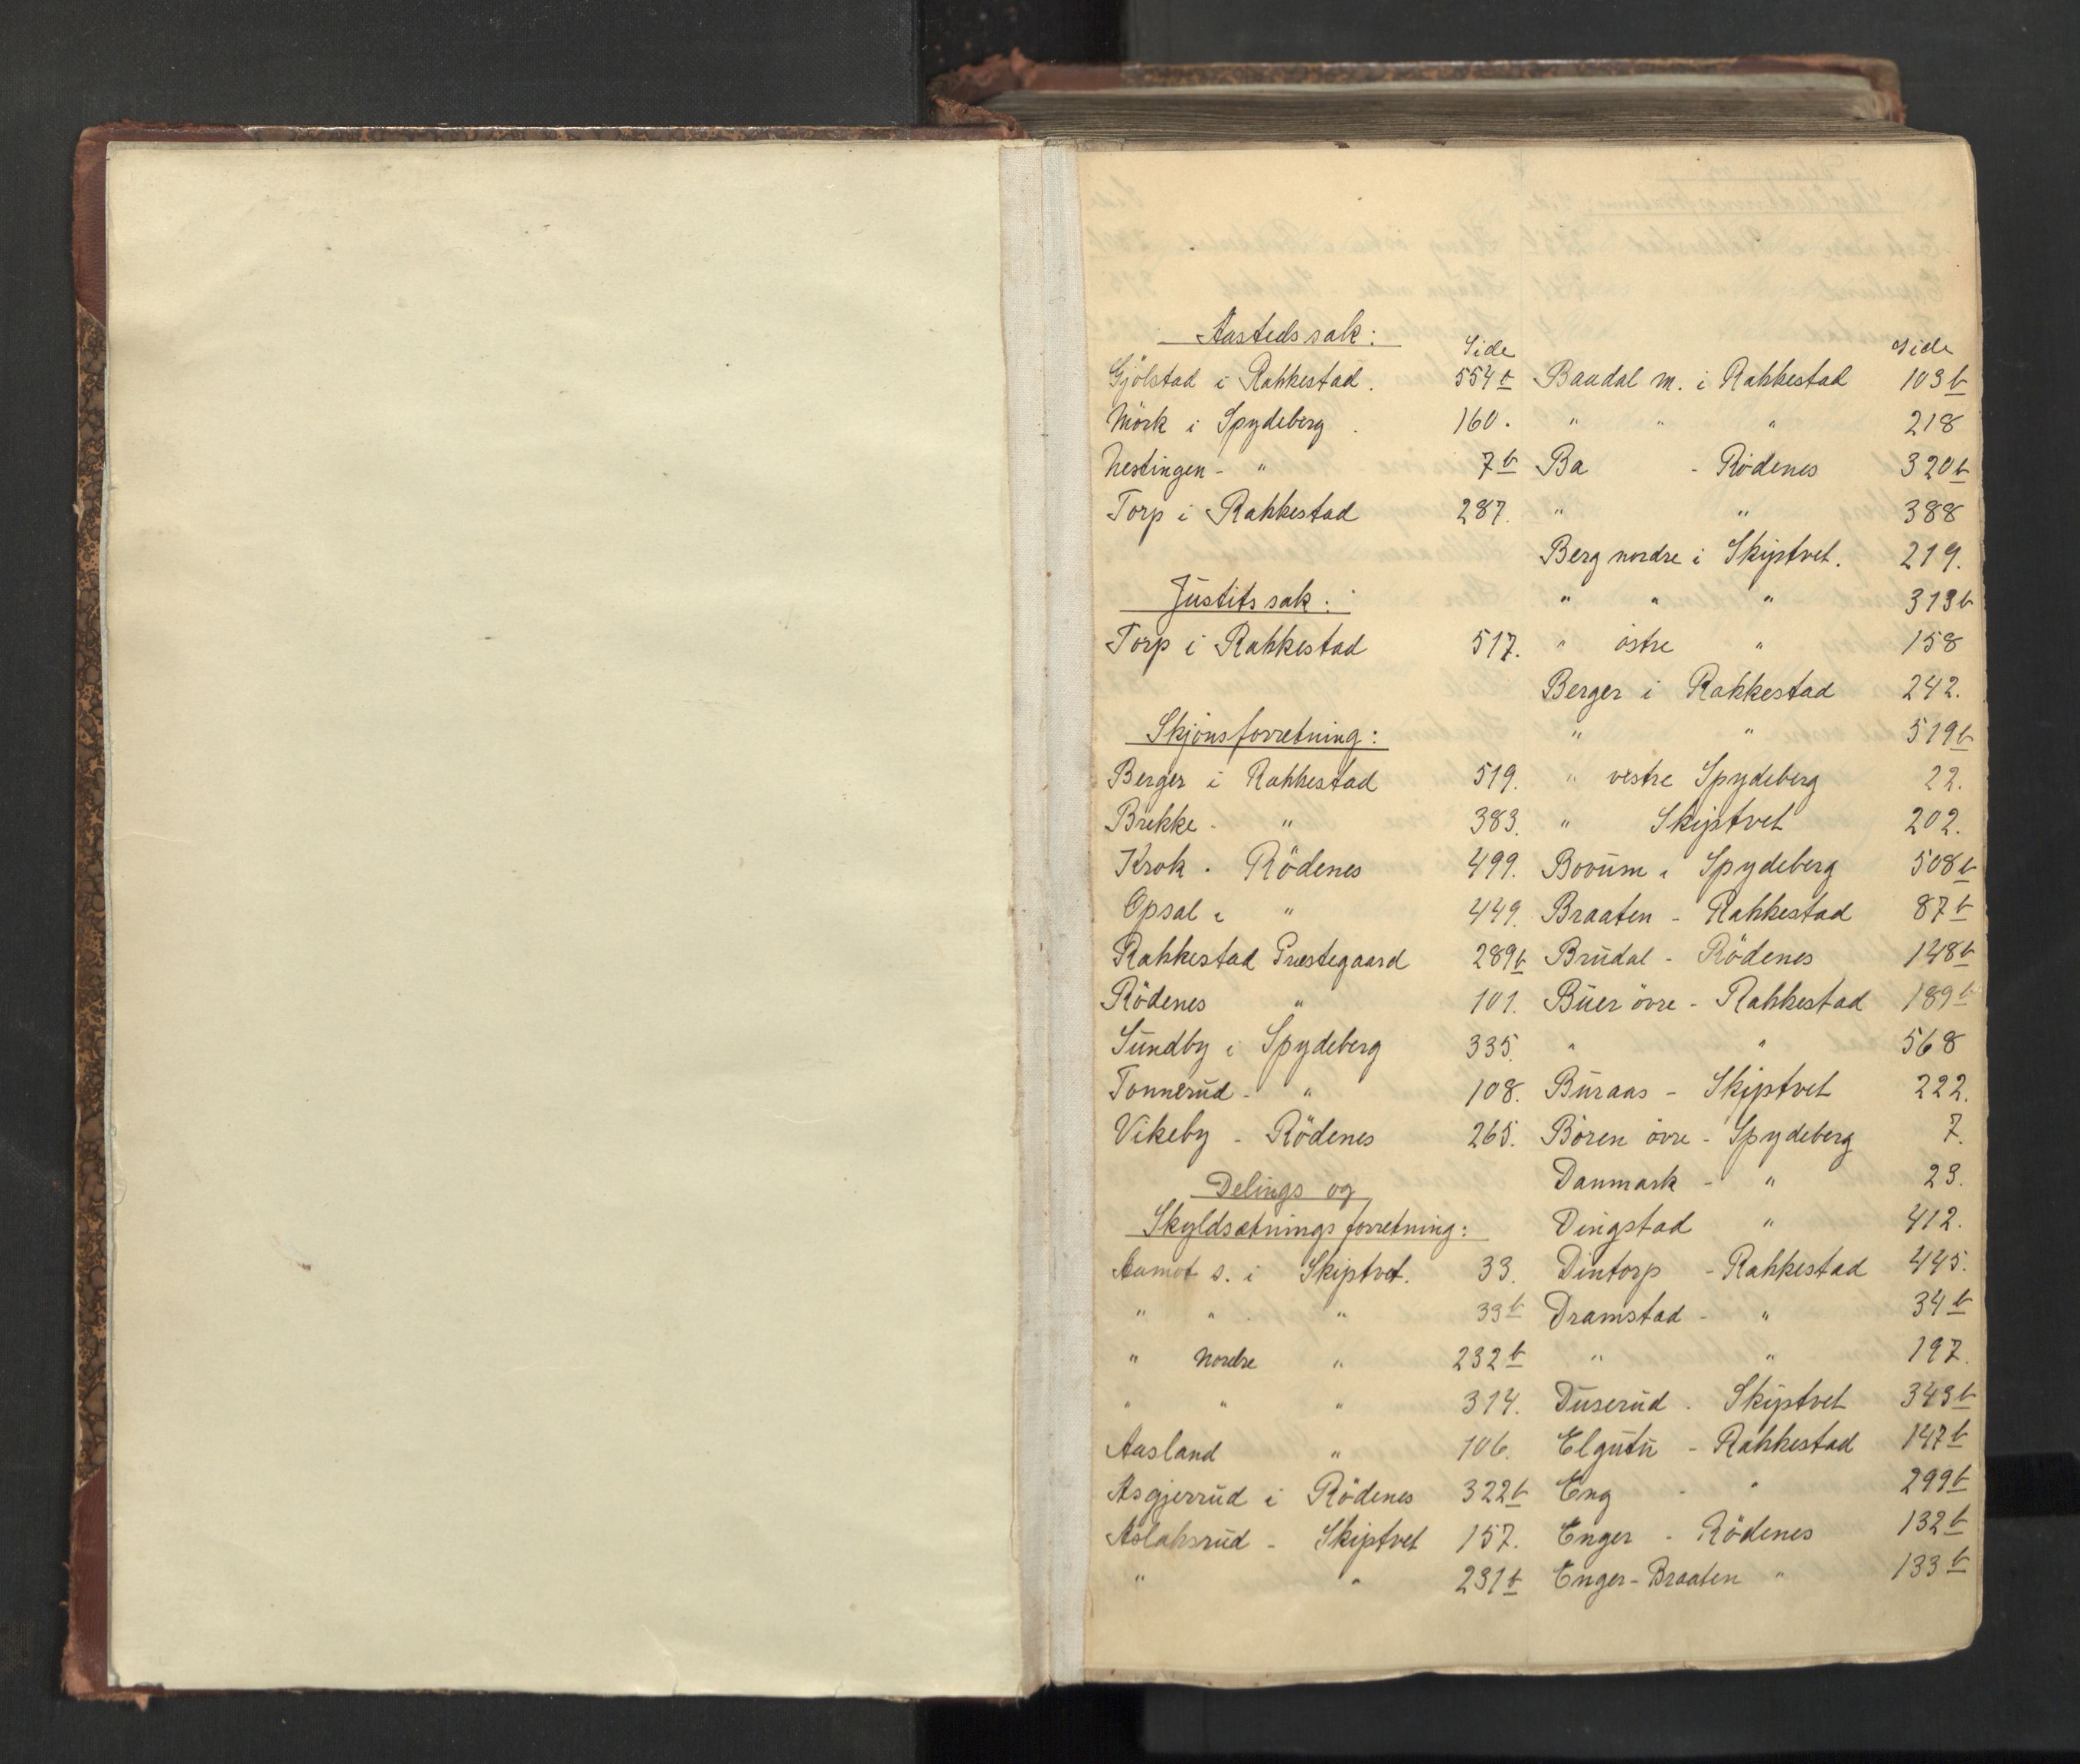 Aastedssak:
Side
Gjölstad i Rakkestad. 554 b
Mörk i Spydeberg. 160.
Nestingen - " 7 b
Torp i Rakkestad 287.
Justitssak:
Torp i Rakkestad 517.
Skjönsforretning:
Berger i Rakkestad 519.
Brekke - " 383.
Krok - Rödenes 499.
Opsal i " 449.
Rakkestad Præstegaard 289 b
Rödenes " 101.
Sundby i Spydeberg 335.
Tonnerud - " 108.
Vikeby - Rödenes 265.
Delings og
Skyldsætningsforretning:
Aamot s. i Skiptvet. 33.
" " " 33 b
" Nordre " 232 b
" " " 314.
Aasland " 106.
Asgjerrud i Rödenes 322 b
Aslaksrud - Skiptvet 157.
" " 231 b
Side
Baadal m. i Rakkestad 103 b
" " " 218
Ba - Rödenes 320 b
" " 388
Berg nordre i Skiptvet. 219.
" " " 313 b
" östre " 158
Berger i Rakkestad 242.
" " 519 b
" vestre Spydeberg 22.
" Skiptvet 202.
Bovum i Spydeberg 508 b
Braaten - Rakkestad 87 b
Brudal - Rödenes 148 b
Buer övre - Rakkestad 189 b
" " 568
Buraas - Skiptvet 222.
Bören övre - Spydeberg 7.
Danmark - " 23.
Dingstad " 412.
Dintorp - Rakkestad 445.
Dramstad - " 34 b
" " 197.
Duserud - Skiptvet 343 b
Elgutu - Rakkestad 147 b
Eng - " 299 b
Enger - Rödenes 132 b
Enger-Braaten " 133 b